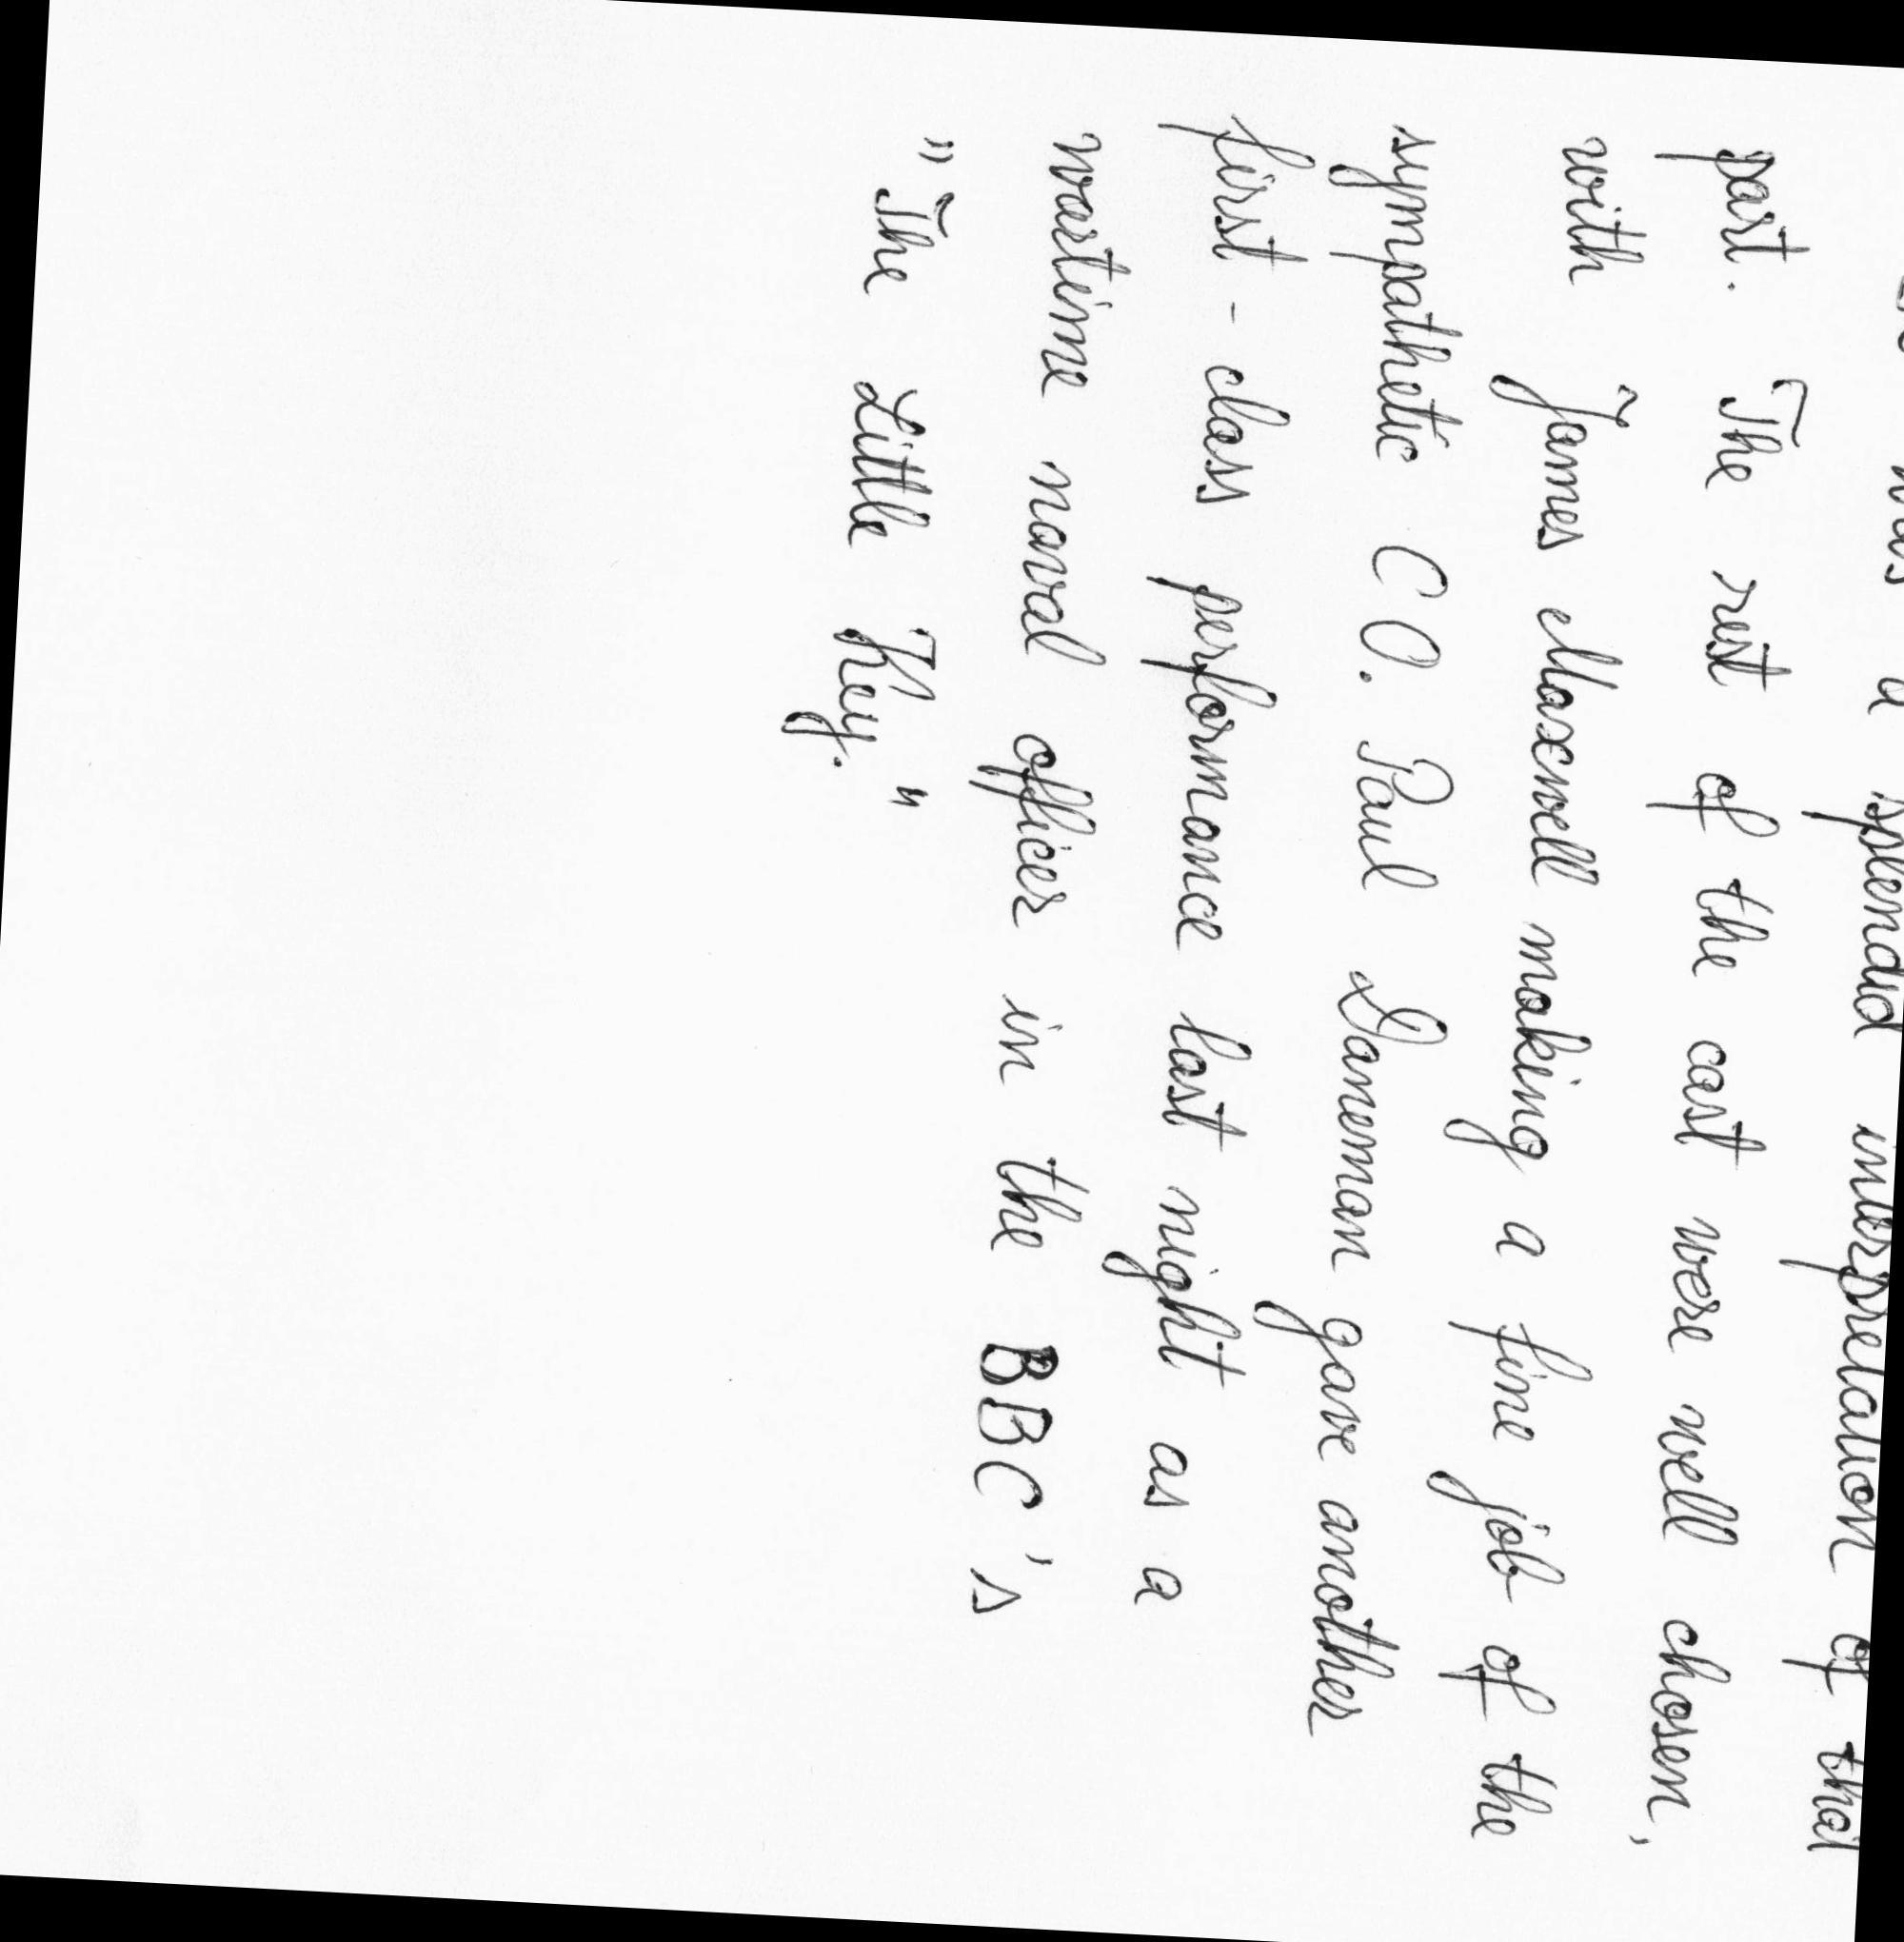 a splendid interpretation of that
part. The rest of the cast were well chosen,
with James Maxwell making a fine job of the
sympathetic CO. Paul Daneman gave another
first-class performance last night as a
wartime naval officer in the BBC's
"The Little Key."